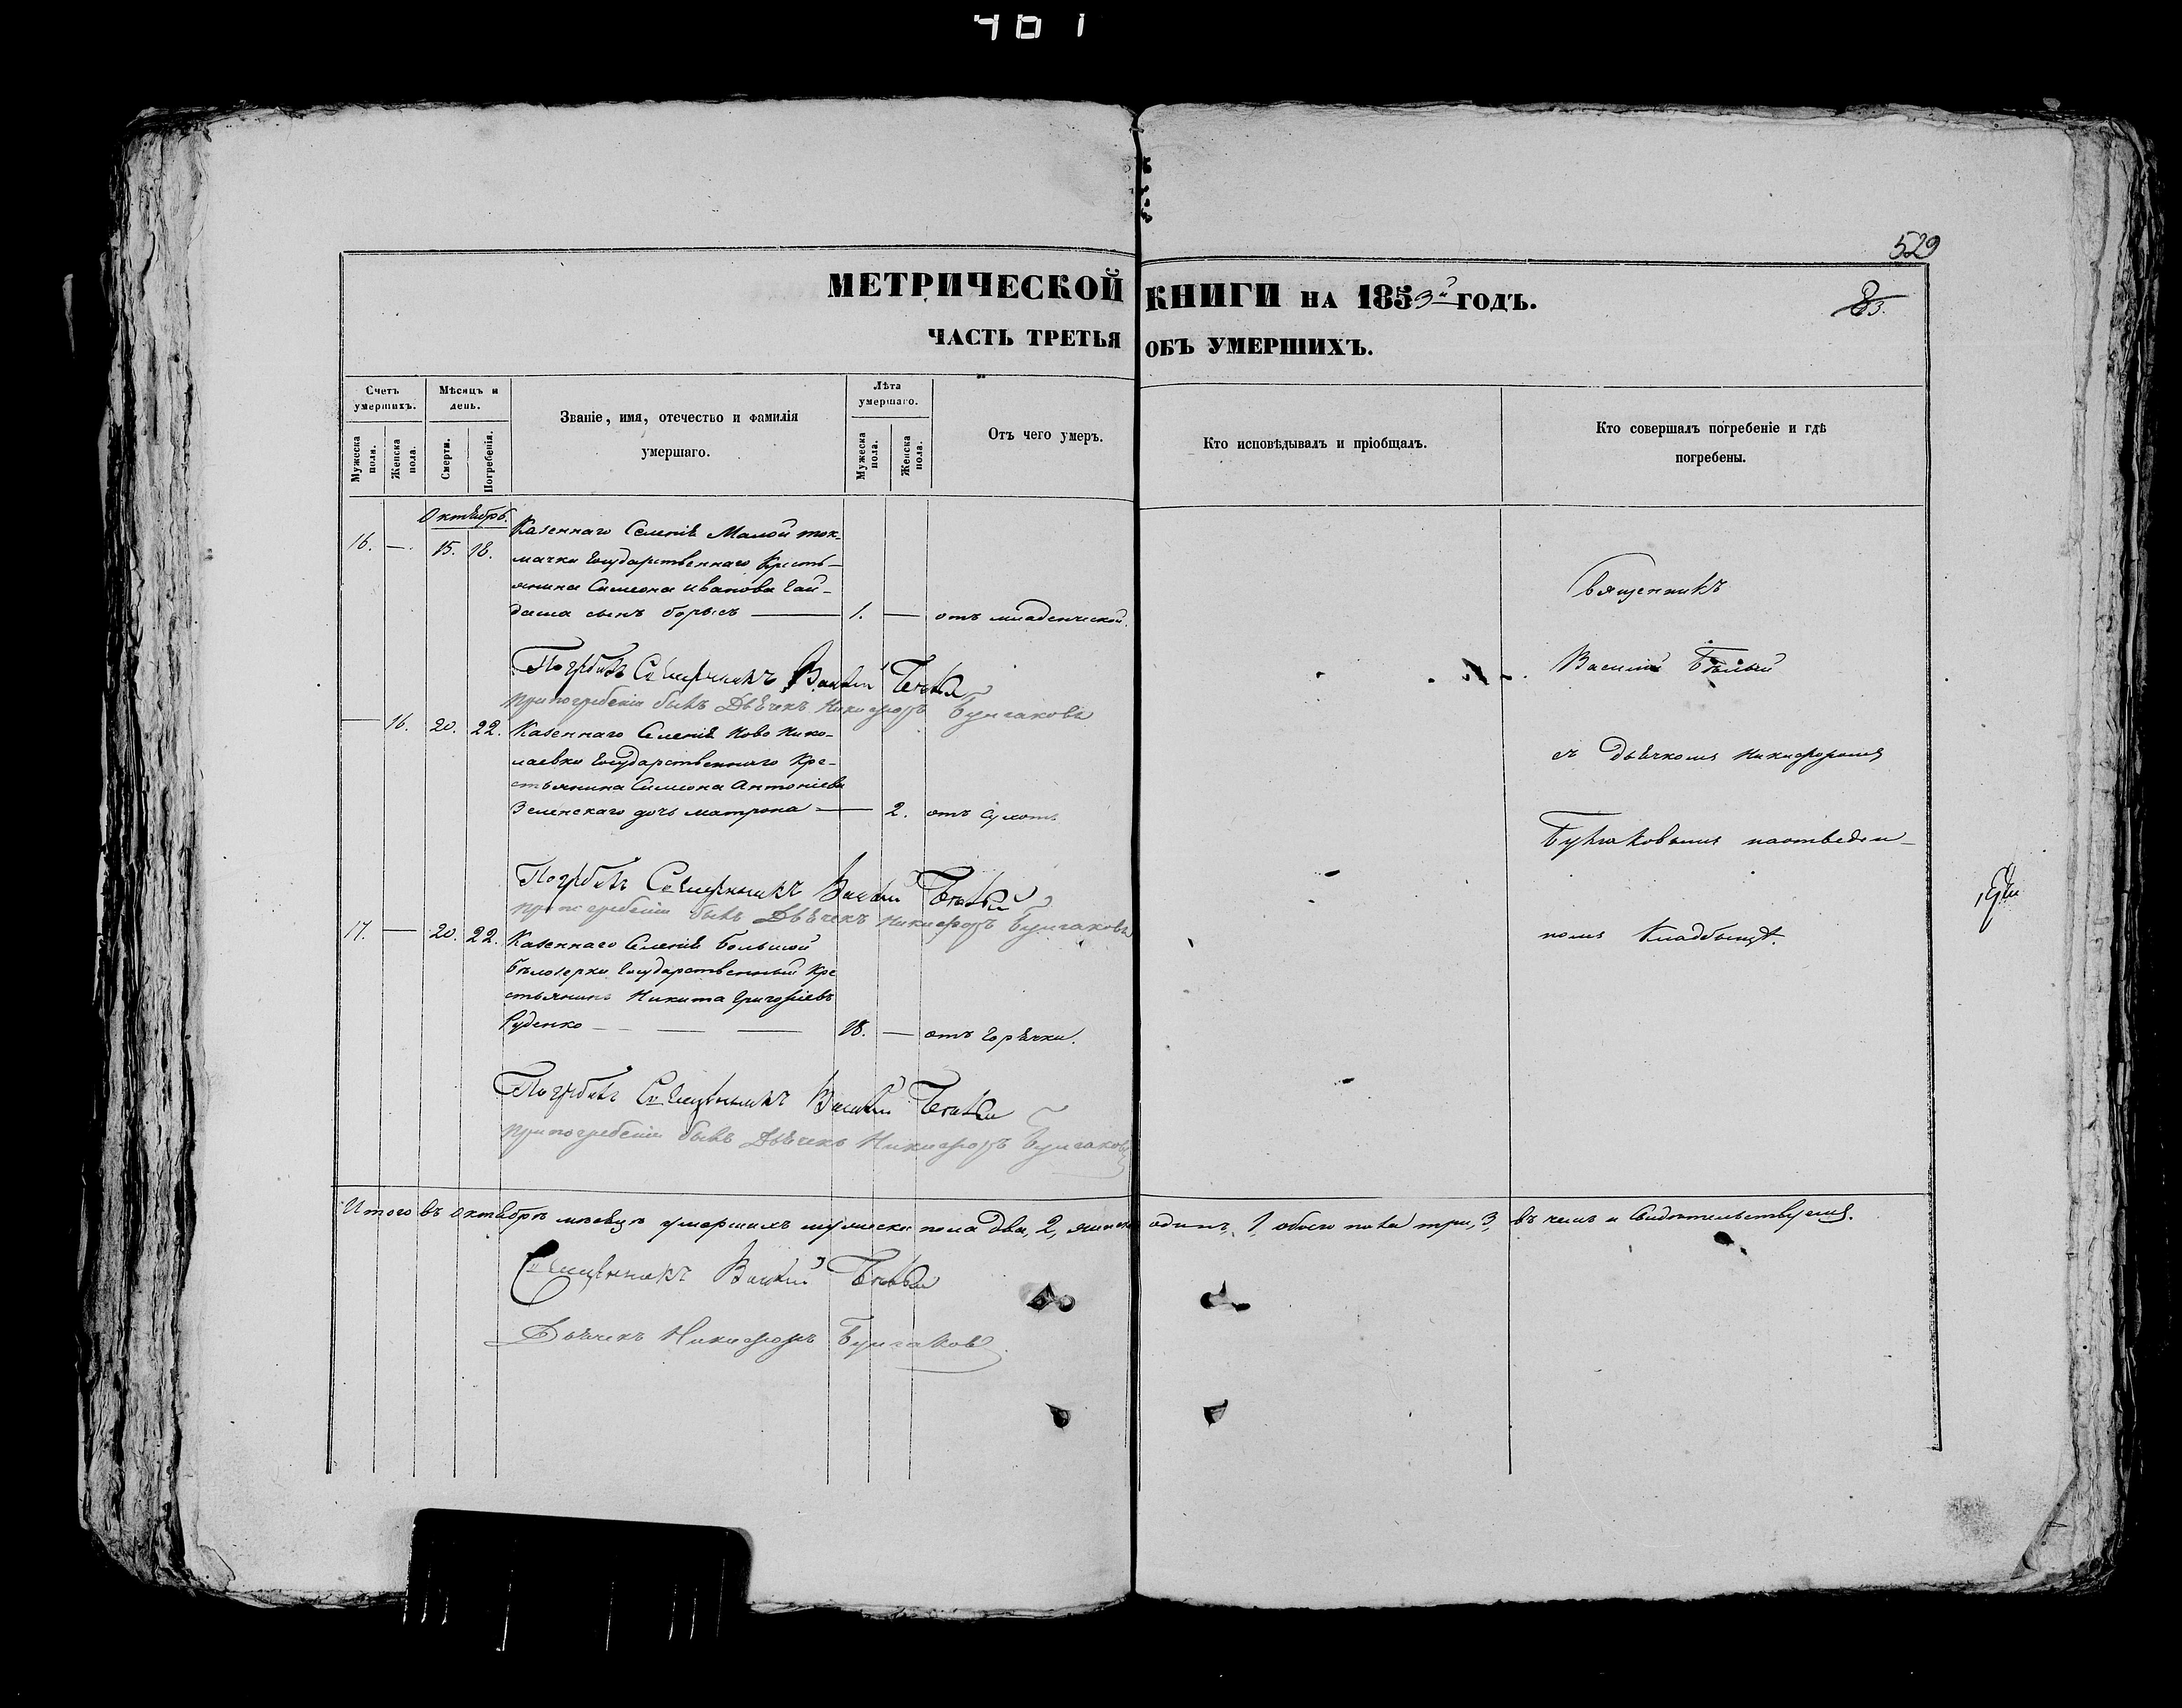 461
529
МЕТРИЧЕСКОЙ КНИГИ НА 1853й ГОДЪ.
ЧАСТЬ ТРЕТЬЯ ОБЪ УМЕРШИХЪ.
Счетъ умершихъ.
Мужеска пола.
Женска пола.
Мѣсяцъ и день.
Смерти.
Погребенія.
Званіе, имя, отечество и фамилія
умершаго.
Лѣта умершаго.
Мужеска пола.
Женска пола.
Отъ чего умеръ.
Кто исповѣдывалъ и пріобщалъ.
Кто совершалъ погребеніе и гдѣ
погребены.
Октябрь.
16. — 15. 18. Казеннаго Селенія Малой ток-
мачки Государственнаго Кресть-
янина Симеона Иванова Гай-
даша сынъ борисъ — 1. — отъ младенческой.
Погребалъ Священникъ Василій Бѣлый
При погребеніи былъ Дьячекъ Никифоръ Булгаковъ
— 16. 20. 22. Казеннаго Селенія Ново Нико-
лаевки Государственнаго Кре-
стьянина Симеона Антоніева
Зеленскаго дочь матрона — 2. отъ сухотъ
Погребалъ Священникъ Василій Бѣлый
при погребеніи былъ Дьячекъ Никифоръ Булгаковъ
17. — 20. 22. Казеннаго Селенія Большой
бѣлозерки Государственный Кре
стьянинъ Никита Григоріевъ
Руденко — 18. — отъ горячки.
Погребалъ Священникъ Василій Бѣлый
При погребеніи былъ Дьячекъ Никифоръ Булгаковъ
Священникъ
Василій Бѣлый
съ дьячкомъ Никифоромъ
Булгаковымъ наотведен-
номъ Кладбищѣ.
Итого въ октябрѣ мѣсяцѣ умершихъ мужеска пола два, 2, женска одинъ, 1, обоего пола три, 3, въ чемъ и Свидѣтельствуемъ.
Священникъ Василій Бѣлый
Дьячекъ Никифоръ Булгаковъ